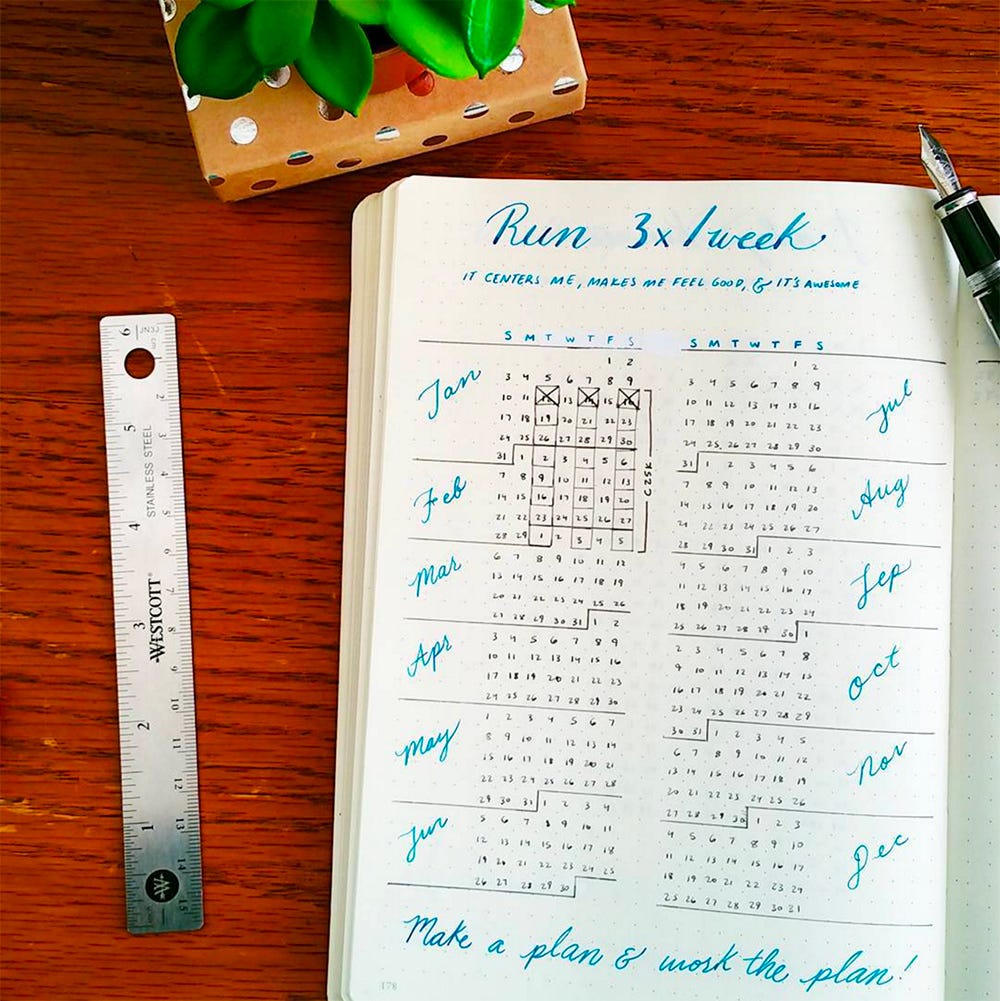 Run 3x/week
IT CENTERS ME, MAKES ME FEEL GOOD, & IT'S AWESOME
S M T W T F S
1 2
Jan
3 4 5 6 7 8 9
10 11 12 13 14 15 16
17 18 19 20 21 22 23
24 25 26 27 28 29 30
31 1 2 3 4 5 6
Feb
7 8 9 10 11 12 13
14 15 16 17 18 19 20
21 22 23 24 25 26 27
28 29 1 2 3 4 5
C25K
Mar
6 7 8 9 10 11 12
13 14 15 16 17 18 19
20 21 22 23 24 25 26
27 28 29 30 31 1 2
Apr
3 4 5 6 7 8 9
10 11 12 13 14 15 16
17 18 19 20 21 22 23
24 25 26 27 28 29 30
May
1 2 3 4 5 6 7
8 9 10 11 12 13 14
15 16 17 18 19 20 21
22 23 24 25 26 27 28
29 30 31 1 2 3 4
Jun
5 6 7 8 9 10 11
12 13 14 15 16 17 18
19 20 21 22 23 24 25
26 27 28 29 30
S M T W T F S
1 2
Jul
3 4 5 6 7 8 9
10 11 12 13 14 15 16
17 18 19 20 21 22 23
24 25 26 27 28 29 30
31 1 2 3 4 5 6
Aug
7 8 9 10 11 12 13
14 15 16 17 18 19 20
21 22 23 24 25 26 27
28 29 30 31 1 2 3
Sep
4 5 6 7 8 9 10
11 12 13 14 15 16 17
18 19 20 21 22 23 24
25 26 27 28 29 30 1
Oct
2 3 4 5 6 7 8
9 10 11 12 13 14 15
16 17 18 19 20 21 22
23 24 25 26 27 28 29
30 31 1 2 3 4 5
Nov
6 7 8 9 10 11 12
13 14 15 16 17 18 19
20 21 22 23 24 25 26
27 28 29 30 1 2 3
Dec
4 5 6 7 8 9 10
11 12 13 14 15 16 17
18 19 20 21 22 23 24
25 26 27 28 29 30 31
Make a plan & work the plan!
178
STAINLESS STEEL
WESTCOTT
cm
1 2 3 4 5 6
2 3 4 5 6 7 8 9 10 11 12 13 14 15